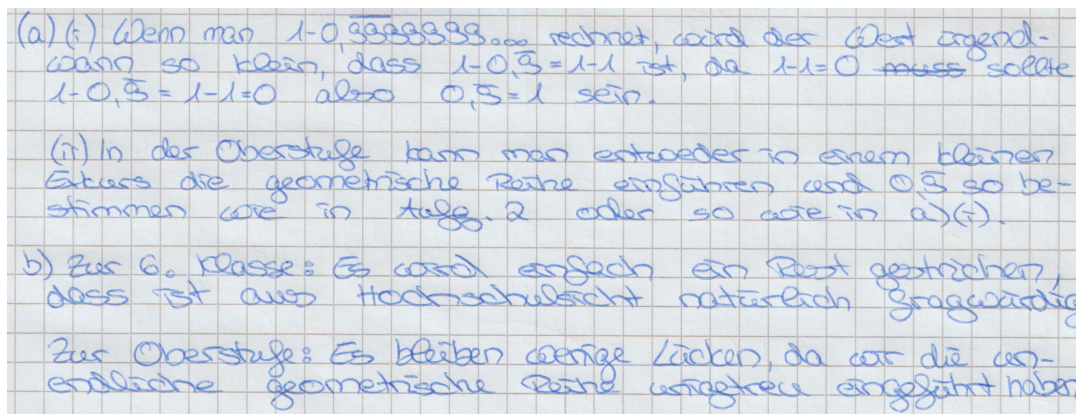 (a) (i) Wenn man 1-0,9999999... rechnet, wird der Wert irgend-
wann so klein, dass 1-0,9̅ = 1-1 ist, da 1-1=0 muss sollte
1-0,9̅ = 1-1=0 also 0,9̅=1 sein.
(ii) In der Oberstufe kann man entweder in einem kleinen
Exkurs die geometrische Reihe einführen und 0,9̅ so be-
stimmen wie in Aufg. 2 oder so wie in a)(i).
b) Zur 6. Klasse: Es wird einfach ein Rest gestrichen,
dass ist aus Hochschulsicht natürlich fragwürdig
Zur Oberstufe: Es bleiben wenige Lücken, da wir die un-
endliche geometrische Reihe eingeführt haben